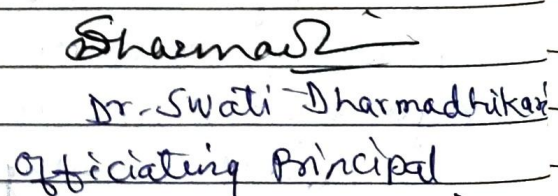 Dr. Swati Dharmadhikari
Officiating Principal